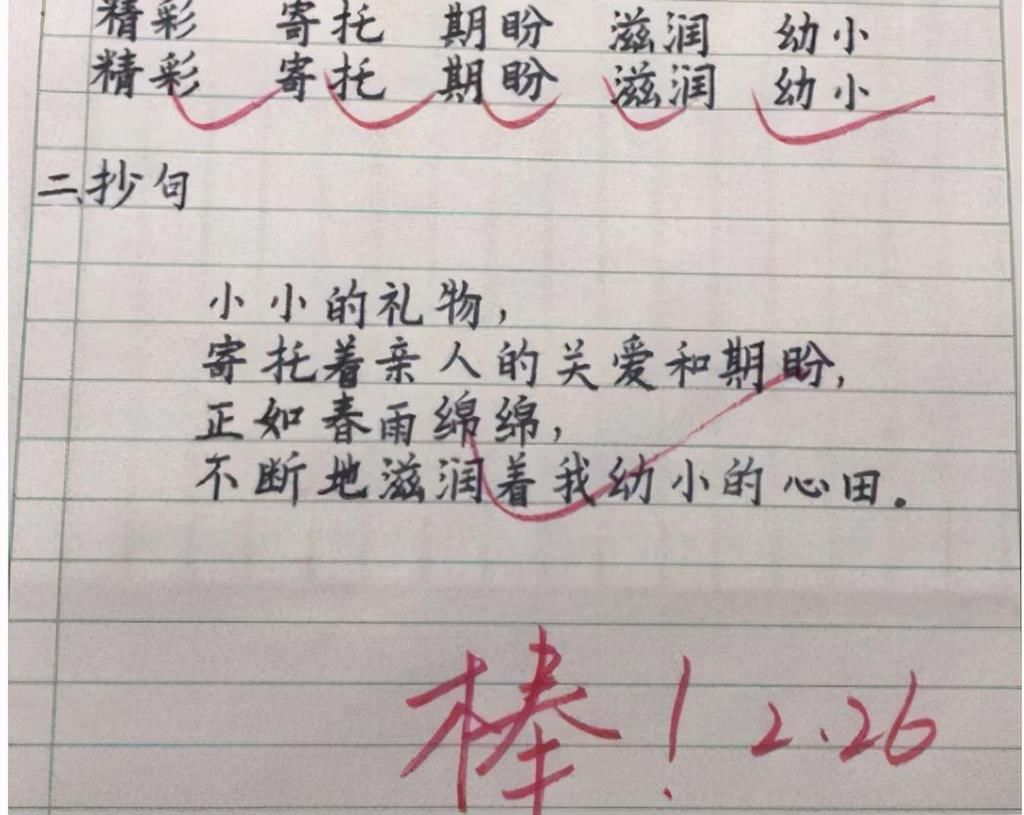 精彩 寄托 期盼 滋润 幼小
精彩 寄托 期盼 滋润 幼小
二、抄句
小小的礼物，
寄托着亲人的关爱和期盼，
正如春雨绵绵，
不断地滋润着我幼小的心田。
棒！2.26